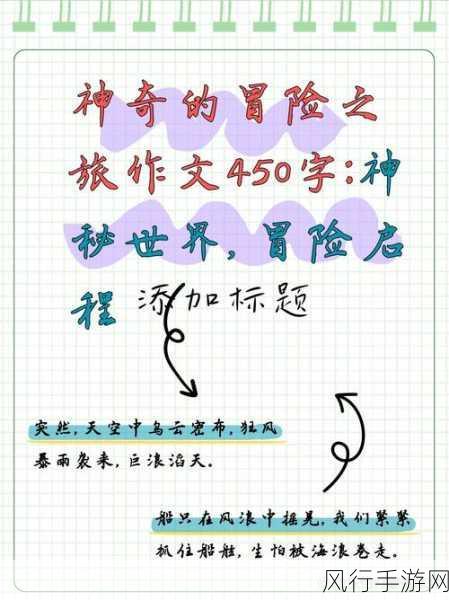 神奇的冒险之
旅作文450字:神
秘世界,冒险启
程
添加标题
突然,天空中乌云密布,狂风
暴雨袭来,巨浪滔天。
船只在风浪中摇晃,我们紧紧
抓住船舷,生怕被海浪卷走。
风行手游网